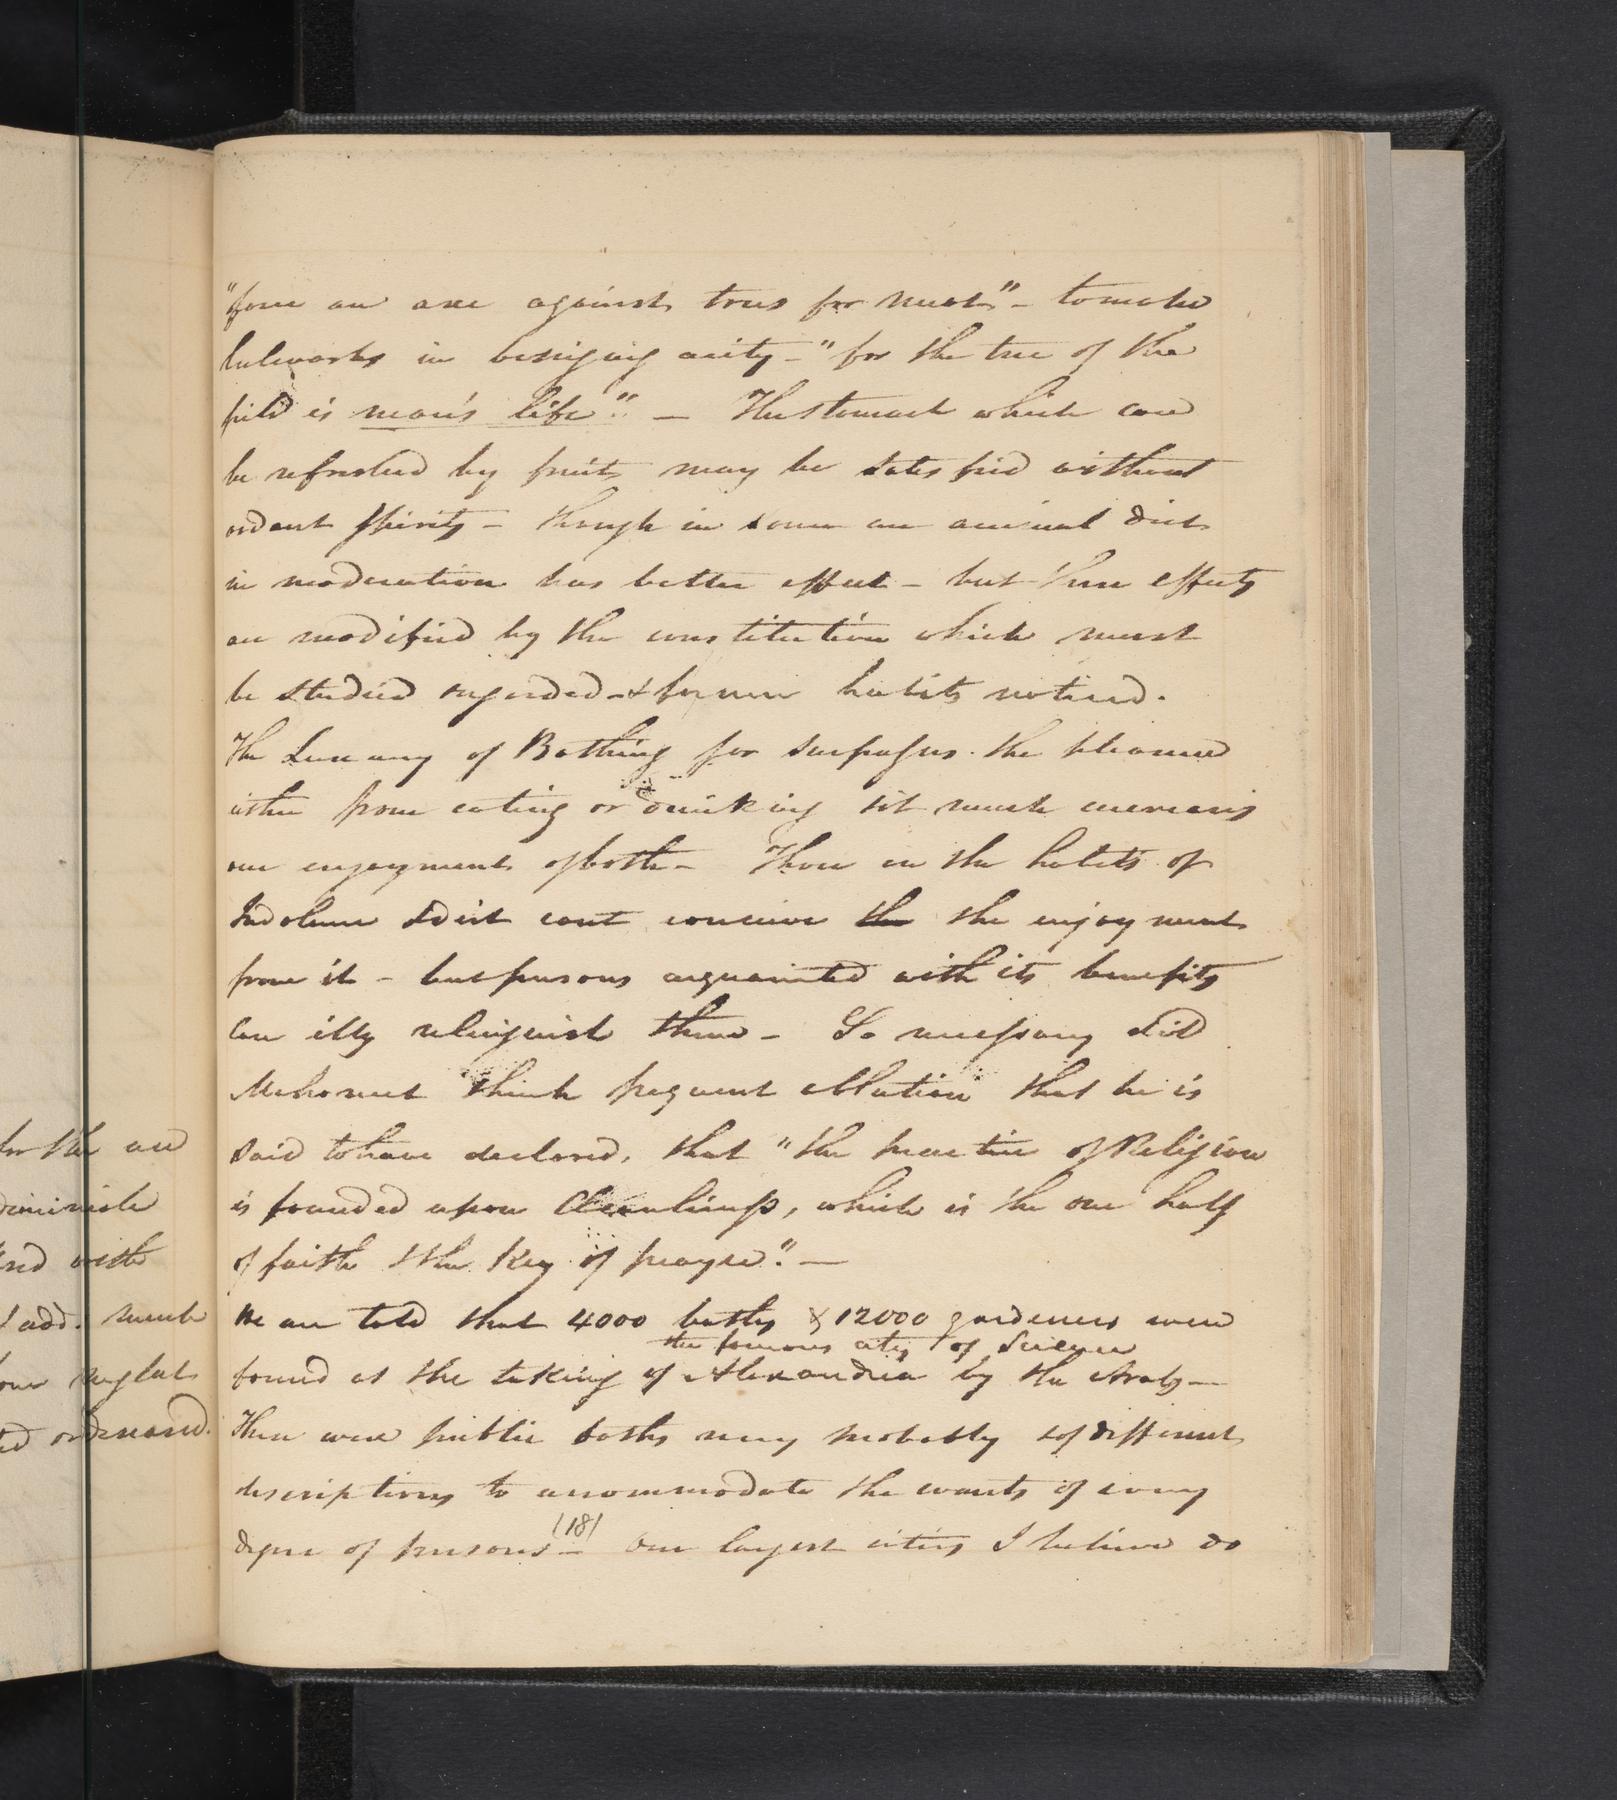 for the and
diminish
and with
& add. much
our neglect
ed or deranged.
"force an axe against trees for meat" - to make
bulwarks in besieging a city - "for the tree of the
field is man's life" - The stomach which can
be refreshed by fruits may be satisfied without
ardent spirits - though in some an animal diet
in moderation has better effect - but these effects
are modified by the constitution which must
be studied regarded & former habits noticed.
The Luxury of Bathing far surpasses the pleasure
either from eating or drinking & it much increases
our enjoyment of both - Those in the habits of
Indolence & dirt cant conceive the the enjoyment
from it - but persons acquainted with its benefits
Can illy relinquish them - So necessary did
Mahomet think frequent ablution that he is
said to have declared, that "the practice of Religion
is founded upon Cleanliness, which is the one half
of faith & the Key of prayer." -
We are told that 4000 baths & 12000 gardeners were
the famous city of Science
found at the taking of Alexandria by the Arabs -
These were public baths very probably & of different
descriptions to accommodate the wants of every
degree of persons - (18) Our largest cities I believe do